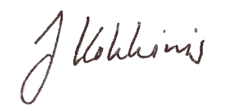 J Kokkinis